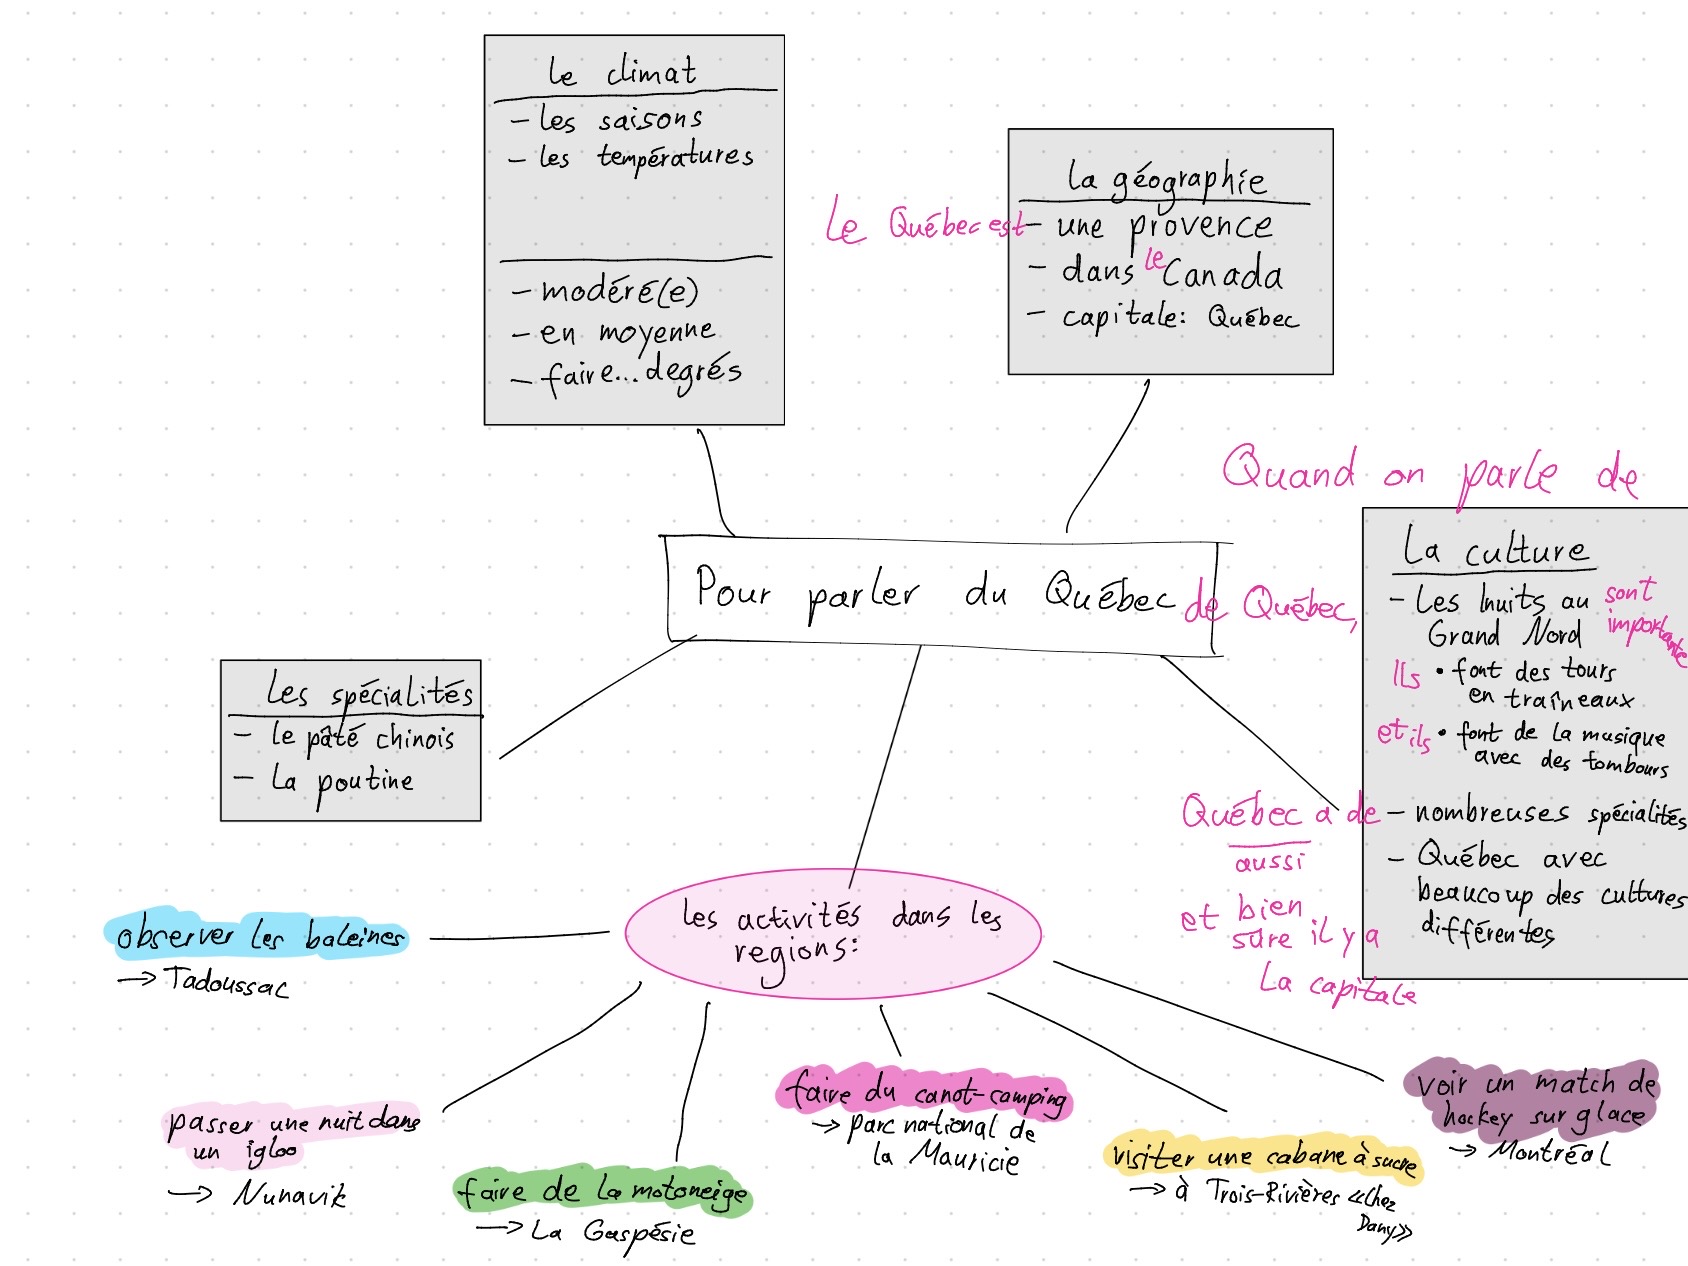 le climat
- les saisons
- les températures
- modéré(e)
- en moyenne
- faire... degrés
la géographie
Le Québec est - une provence
- dans le Canada
- capitale: Québec
Quand on parle de
Pour parler du Québec de Québec,
La culture
- Les Inuits au sont
Grand Nord importante
Ils • font des tours
en traîneaux
et ils • font de la musique
avec des tombours
Québec a de - nombreuses spécialités
aussi
- Québec avec
beaucoup des cultures
différentes
et bien
sûre il y a
La capitale
Les spécialités
- le pâté chinois
- la poutine
les activités dans les
regions:
observer les baleines
→ Tadoussac
passer une nuit dans
un igloo
→ Nunavik
faire de la motoneige
→ La Gaspésie
faire du canot-camping
→ parc national de
la Mauricie
visiter une cabane à sucre
→ à Trois-Rivières «Chez
Dany»
voir un match de
hockey sur glace
→ Montréal